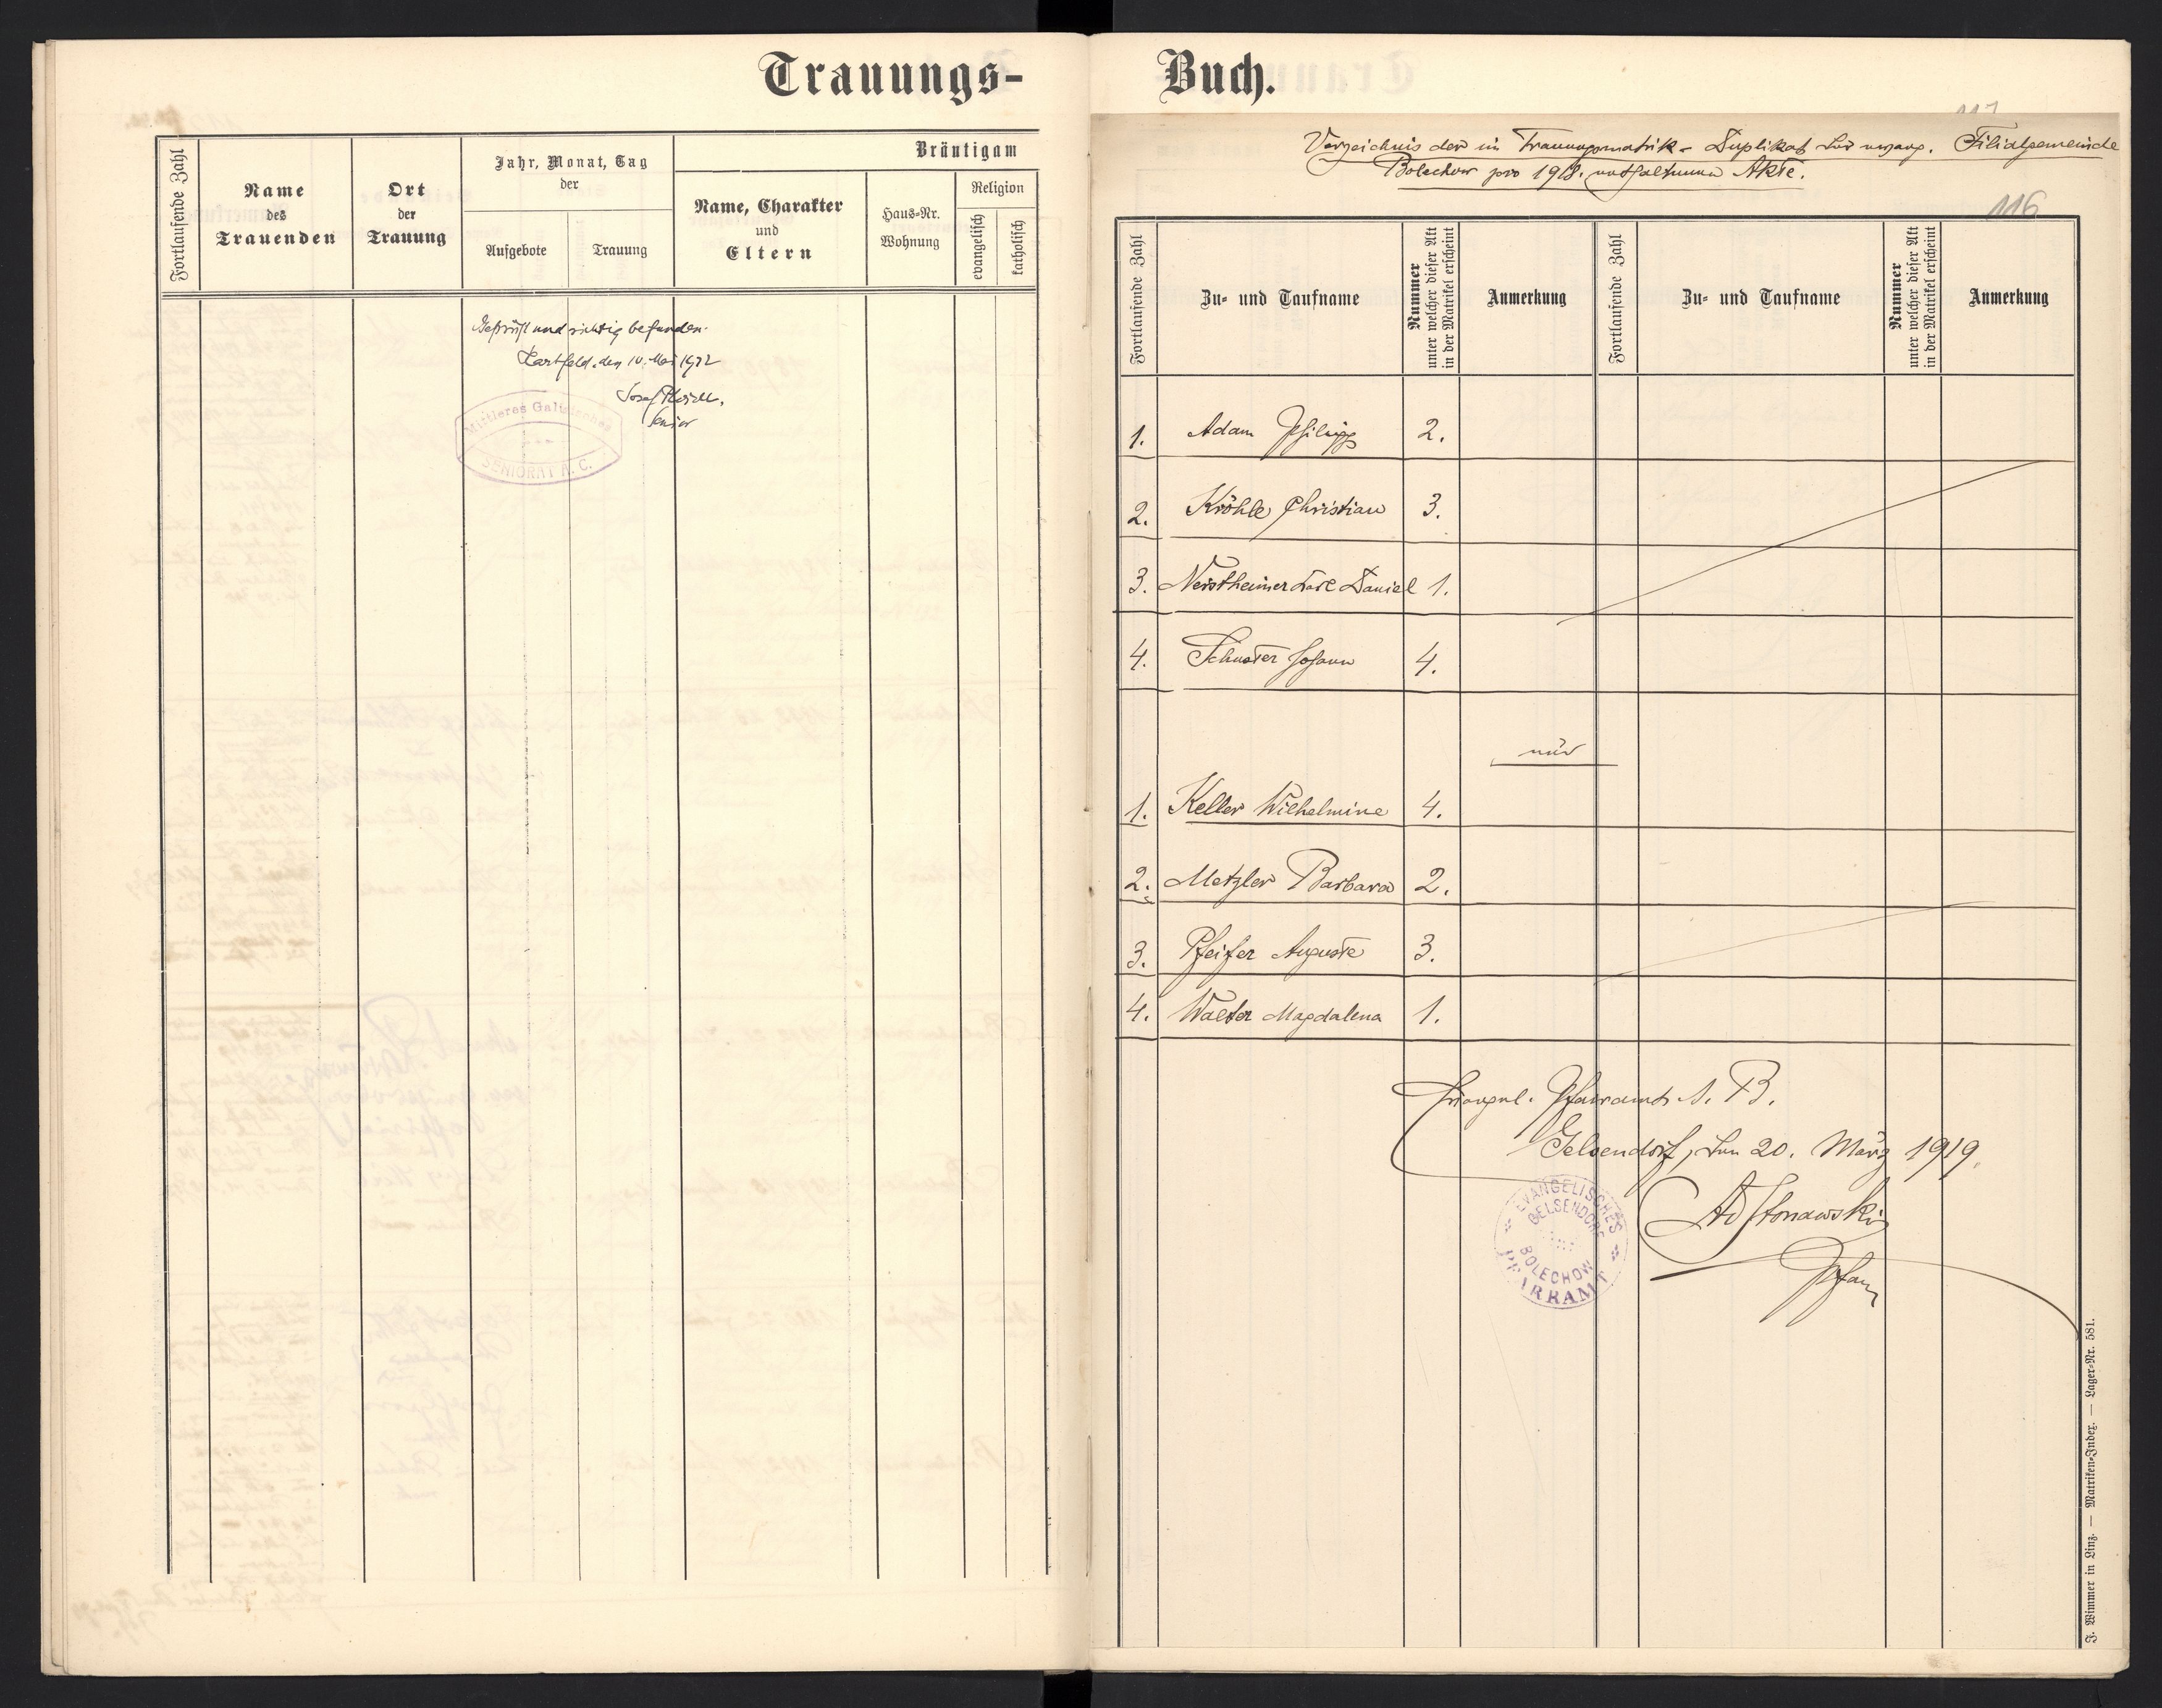 Trauungs-
Fortlaufende Zahl
Name
des
Trauenden
Ort
der
Trauung
Jahr, Monat, Tag
der
Aufgebote
Trauung
Bräutigam
Name, Charakter
und
Eltern
Haus-Nr.
Wohnung
Religion
evangelisch
katholisch
Geprüft und richtig befunden.
den 10. Mai 1922
Josef
Senior
Mittleres Galizisches
SENIORAT A. C.
Buch.
Verzeichnis der im Trauungsmatrik-Duplikat der evang. Filialgemeinde
Bolechow pro 1918. enthaltenen Akte.
116
Fortlaufende Zahl
Zu- und Taufname
Nummer
unter welcher dieser Akt
in der Matrikel erscheint
Anmerkung
Fortlaufende Zahl
Zu- und Taufname
Nummer
unter welcher dieser Akt
in der Matrikel erscheint
Anmerkung
1. Adam Philipp 2.
2. Kröhle Christian 3.
3. Daniel 1.
4. Schuster Johann 4.
und
1. Keller Wilhelmine 4.
2. Metzler Barbara 2.
3. Pfeifer Auguste 3.
4. Walter Magdalena 1.
Evangel. Pfarramt A. B.
Gelsendorf, den 20. März 1919.
Pfarrer
EVANGELISCHES
GELSENDORF
BOLECHOW
PFARRAMT
F. Wimmer in Linz. — Matriken-Index. — Lager-Nr. 581.